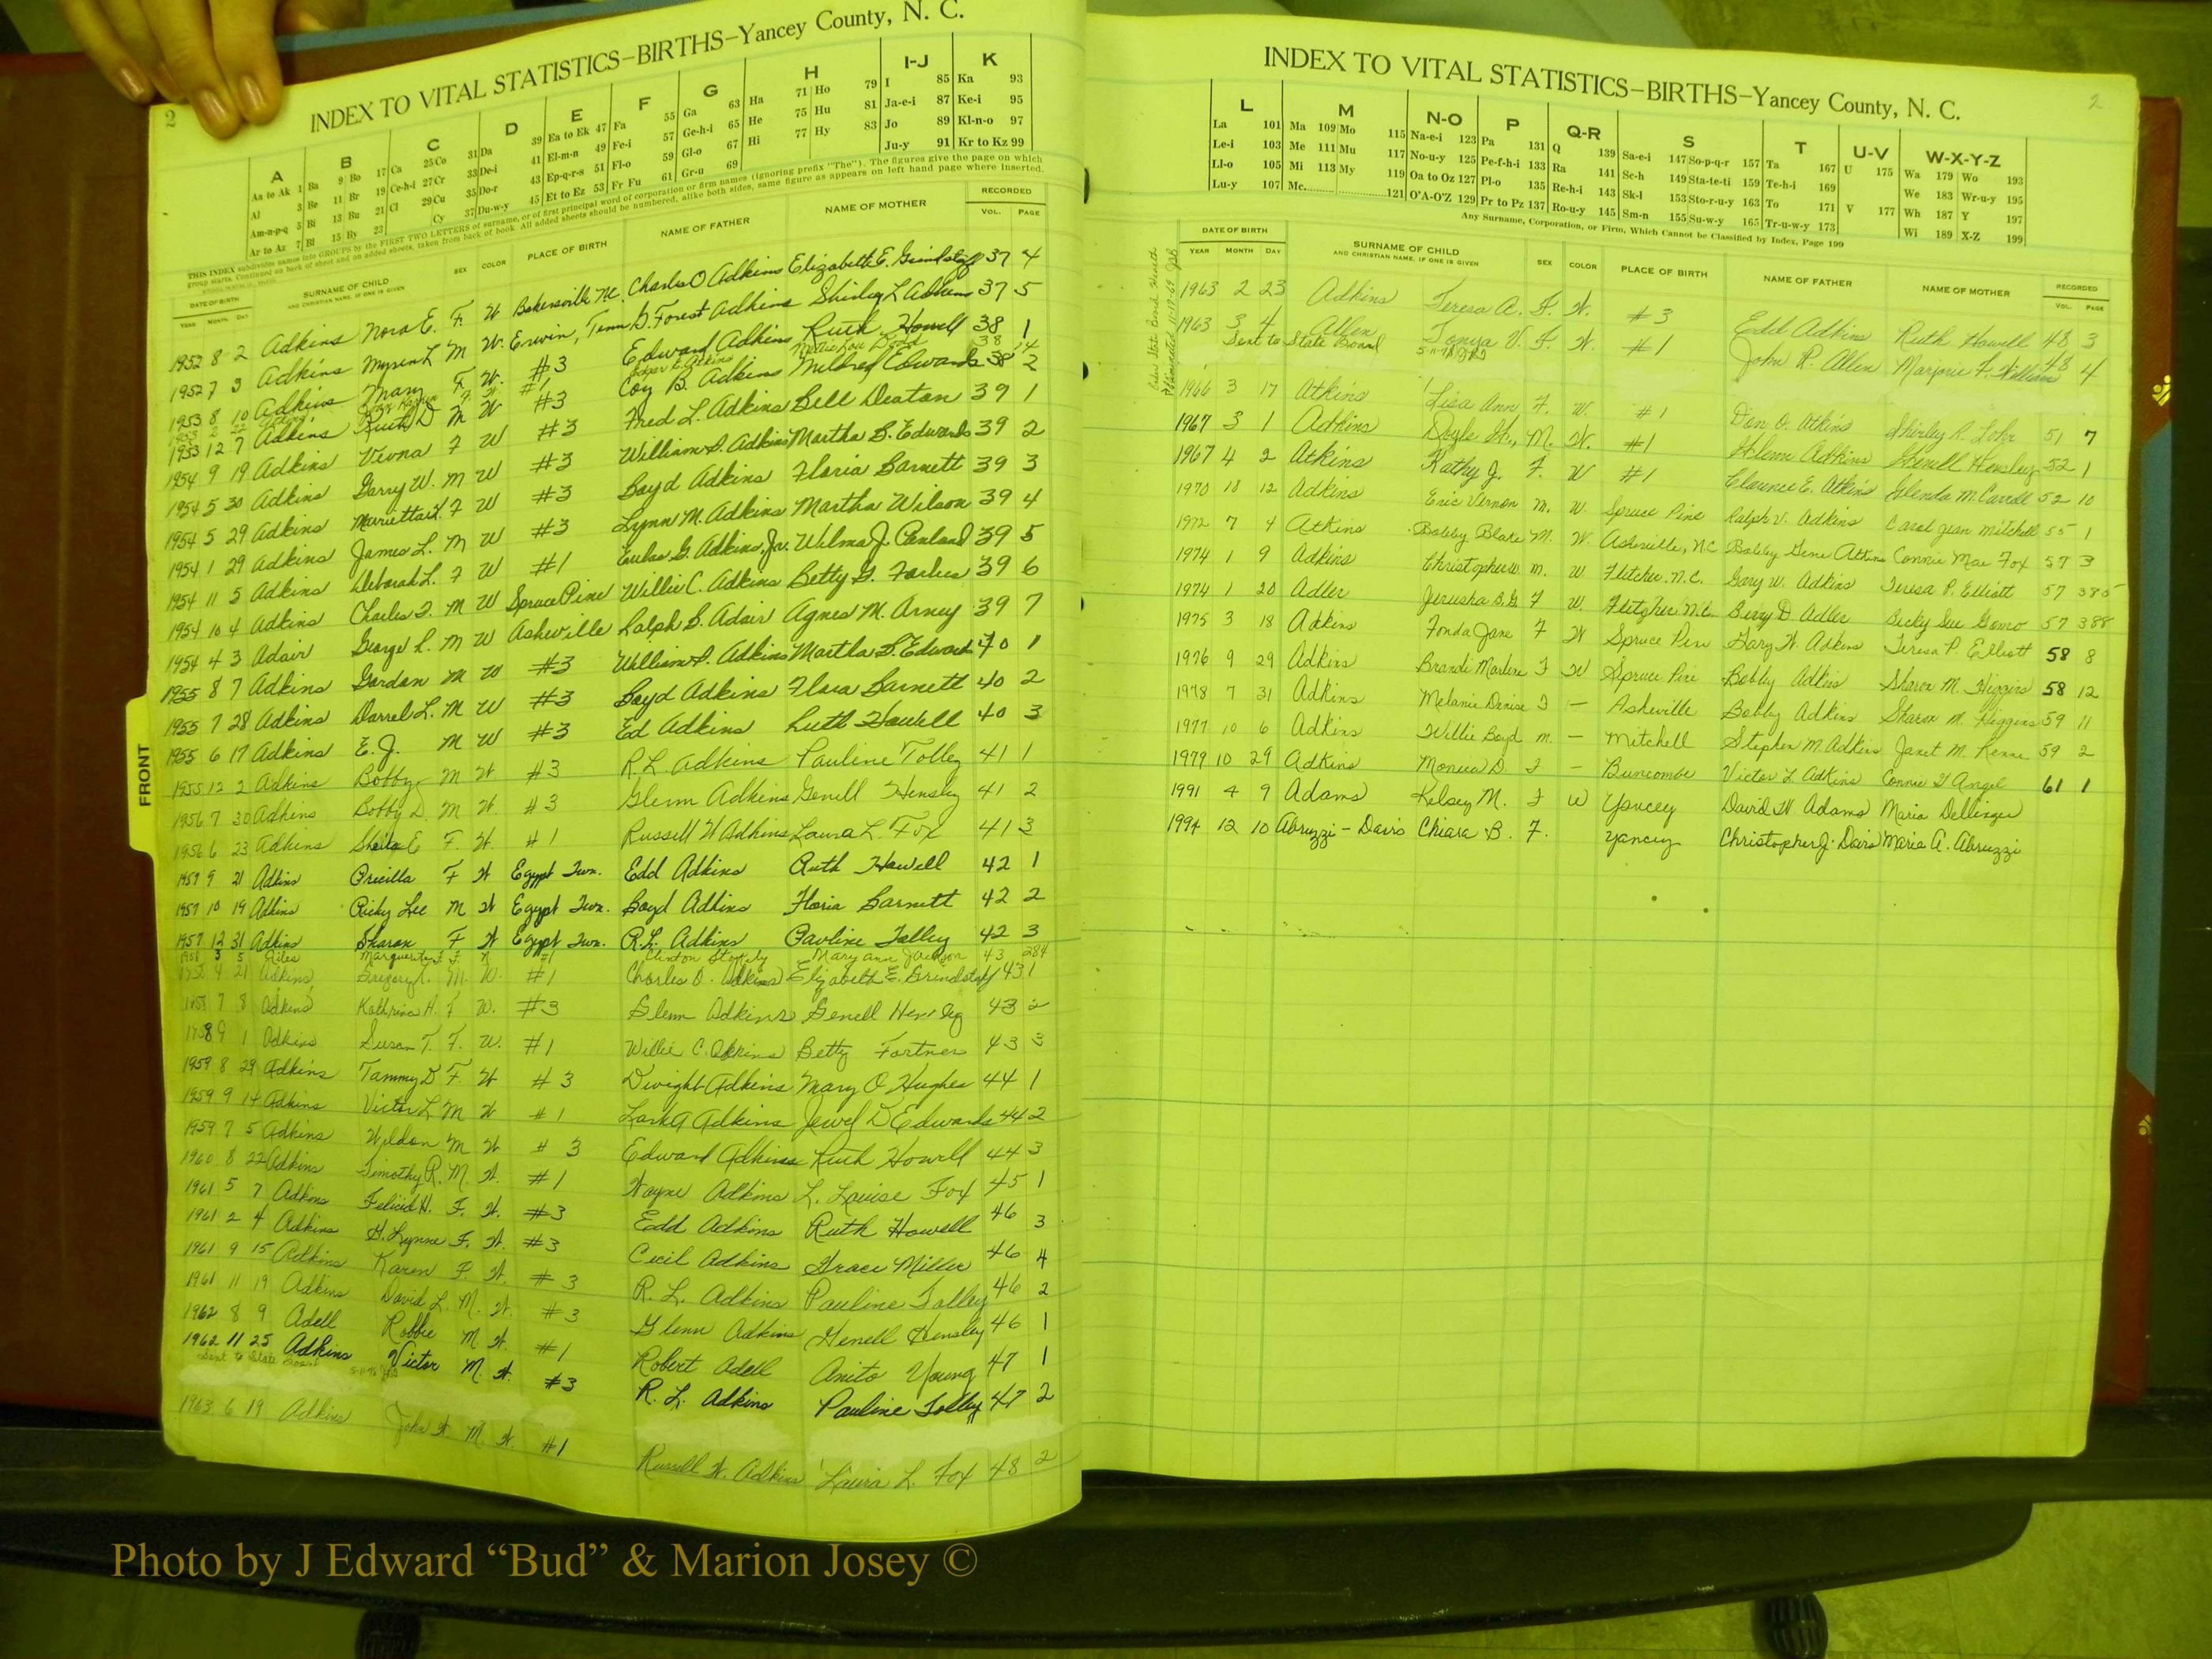 2
INDEX TO VITAL STATISTICS—BIRTHS—Yancey County, N. C.
A B C D E F G H I-J K
Aa to Ak 1 Ba 9 Bo 17 Ca 25 Co 31 Da 39 Ea to Ek 47 Fa 55 Ga 63 Ha 71 Ho 79 I 85 Ka 93
Al 3 Be 11 Br 19 Ce-h-i 27 Cr 33 De-i 41 El-m-n 49 Fe-i 57 Ge-h-i 65 He 75 Hu 81 Ja-e-i 87 Ke-i 95
Am-n-p-q 5 Bi 13 Bu 21 Cl 29 Cu 35 Do-r 43 Ep-q-r-s 51 Fl-o 59 Gl-o 67 Hi 77 Hy 83 Jo 89 Kl-n-o 97
Ar to Az 7 Bl 15 By 23 Cy 37 Du-w-y 45 Et to Ez 53 Fr Fu 61 Gr-u 69 Ju-y 91 Kr to Kz 99
THIS INDEX subdivides names into GROUPS by the FIRST TWO LETTERS of surname, or of first principal word of corporation or firm names (ignoring prefix "The"). The figures give the page on which
group starts. Continued on back of sheet and on added sheets, taken from back of book. All added sheets should be numbered, alike both sides, same figure as appears on left hand page where inserted.
DATE OF BIRTH SURNAME OF CHILD SEX COLOR PLACE OF BIRTH NAME OF FATHER NAME OF MOTHER RECORDED
YEAR MONTH DAY AND CHRISTIAN NAME, IF ONE IS GIVEN VOL. PAGE
1952 8 2 Adkins Nora E. F. W Bakersville NC. Charles O Adkins Elizabeth E. Grindstaff 37 4
1952 7 3 Adkins Myren L M W. Erwin, Tenn D. Forest Adkins Shirley L Adkins 37 5
1953 8 10 Adkins Mary F. W. #3 Edward Adkins Ruth Howell 38 1
1953 12 7 Adkins D M W #3 Coy B. Adkins Mildred Edwards 38 2
1954 9 19 Adkins Vivna F W #3 Fred L. Adkins Bell Deaton 39 1
1954 5 30 Adkins Garry W. M W #3 William S. Adkins Martha B. Edwards 39 2
1954 5 29 Adkins F W #3 Boyd Adkins Floria Barnett 39 3
1954 1 29 Adkins James L. M W #3 Lynn M. Adkins Martha Wilson 39 4
1954 11 5 Adkins Deborah L. F W #1 G. Adkins, Jr. Wilma J. 39 5
1954 10 4 Adkins Charles M W Spruce Pine Willie C. Adkins Betty G. Forbes 39 6
1954 4 3 Adair George L. M W Asheville Ralph S. Adair Agnes M. Arney 39 7
1955 8 7 Adkins Gordon M W #3 William S. Adkins Martha B. Edwards 40 1
1955 7 28 Adkins Darrel L. M W #3 Boyd Adkins Flora Barnett 40 2
1955 6 17 Adkins E. J. M W #3 Ed Adkins Ruth Howell 40 3
1955 12 2 Adkins Bobby M W #3 R. L. Adkins Pauline Tolley 41 1
1956 7 30 Adkins Bobby D. M W. #3 Glenn Adkins Genell Hensley 41 2
1956 6 23 Adkins Sheila E F. W. #1 Russell W Adkins Laura L. Fox 41 3
1957 9 21 Adkins Pricilla F W Egypt Twn. Edd Adkins Ruth Howell 42 1
1957 10 19 Adkins Ricky Lee M W Egypt Twn. Boyd Adkins Floria Barnett 42 2
1957 12 31 Adkins Sharon F W Egypt Twn. R. L. Adkins Pauline Tolley 42 3
1958 3 5 F. Mary Ann Jackson 43 284
1958 4 21 Adkins Gregory M. W. #1 Charles O. Adkins Elizabeth E. Grindstaff 43 1
1958 7 8 Adkins Kathrine H. F W. #3 Glenn Adkins Genell Hensley 43 2
1958 9 1 Adkins Susan T. F. W. #1 Willie C. Adkins Betty Fortner 43 3
1959 8 29 Adkins Tammy D F. W #3 Dwight Adkins Mary O Hughes 44 1
1959 9 14 Adkins Victor L M W #1 Lark A Adkins Jewel D Edwards 44 2
1959 7 5 Adkins Weldon M W #3 Edward Adkins Ruth Howell 44 3
1960 8 22 Adkins Timothy R. M. W. #1 Wayne Adkins L. Louise Fox 45 1
1961 5 7 Adkins Felicia H. F. W. #3 Edd Adkins Ruth Howell 46 3
1961 2 4 Adkins Lynne F. W. #3 Cecil Adkins Grace Miller 46 4
1961 9 15 Adkins Karen F. W. #3 R. L. Adkins Pauline Tolley 46 2
1961 11 19 Adkins David L. M. W. #3 Glenn Adkins Genell Hensley 46 1
1962 8 9 Adell Robbie M W. #1 Robert Adell Anito Young 47 1
1962 11 25 Adkins Victor M. W. #3 R. L. Adkins Pauline Tolley 47 2
Sent to State Board
1963 6 19 Adkins John W M W. #1 Russell W. Adkins Laura L. Fox 48 2
FRONT
INDEX TO VITAL STATISTICS—BIRTHS—Yancey County, N. C.
2
L M N-O P Q-R S T U-V W-X-Y-Z
La 101 Ma 109 Mo 115 Na-e-i 123 Pa 131 Q 139 Sa-e-i 147 So-p-q-r 157 Ta 167 U 175 Wa 179 Wo 193
Le-i 103 Me 111 Mu 117 No-u-y 125 Pe-f-h-i 133 Ra 141 Sc-h 149 Sta-te-ti 159 Te-h-i 169 We 183 Wr-u-y 195
Ll-o 105 Mi 113 My 119 Oa to Oz 127 Pl-o 135 Re-h-i 143 Sk-l 153 Sto-r-u-y 163 To 171 V 177 Wh 187 Y 197
Lu-y 107 Mc 121 O'A-O'Z 129 Pr to Pz 137 Ro-u-y 145 Sm-n 155 Su-w-y 165 Tr-u-w-y 173 Wi 189 X-Z 199
Any Surname, Corporation, or Firm, Which Cannot be Classified by Index, Page 199
DATE OF BIRTH SURNAME OF CHILD SEX COLOR PLACE OF BIRTH NAME OF FATHER NAME OF MOTHER RECORDED
YEAR MONTH DAY AND CHRISTIAN NAME, IF ONE IS GIVEN VOL. PAGE
1963 2 23 Adkins Teresa A. F. W. #3 Edd Adkins Ruth Howell 48 3
1963 3 4 Allen Tonya V. F. W. #1 John R. Allen Marjorie F. William 48 4
Sent to State Board
1966 3 17 Atkins Lisa Ann F. W. #1 Don O. Atkins Shirley R. Lohr 51 7
1967 3 1 Adkins Doyle M. W. #1 Glenn Adkins Genell Hensley 52 1
1967 4 2 Atkins Kathy J. F. W #1 Clarence E. Atkins Glenda M. Carroll 52 10
1970 18 12 Adkins Eric Vernon M. W. Spruce Pine Ralph V. Adkins Carol Jean Mitchell 55 1
1972 7 4 Atkins Bobby Blake M. W. Asheville, NC Bobby Gene Atkins Connie Mae Fox 57 3
1974 1 9 Adkins Christopher W. M. W Fletcher. N.C. Gary W. Adkins Teresa P. Elliott 57 385
1974 1 20 Adler Jerusha B.G. F W. Fletcher N.C. Barry D Adler Becky Sue 57 388
1975 3 18 Adkins Fonda Jane F W Spruce Pine Gary W. Adkins Teresa P. Elliott 58 8
1976 9 29 Adkins Brandi Marlene F W Spruce Pine Bobby Adkins Sharon M. Higgins 58 12
1978 7 31 Adkins Melanie Denise F — Asheville Bobby Adkins Sharon M. Higgins 59 11
1977 10 6 Adkins Willie Boyd M. — Mitchell Stephen M. Adkins Janet M. 59 2
1979 10 29 Adkins Monica D. F — Buncombe Victor L. Adkins Connie Angel 61 1
1991 4 9 Adams Kelsey M. F W Yancey David W Adams Maria Dellinger
1994 12 10 Abruzzi - Davis Chiara B. F. Yancey Christopher J. Davis Maria A. Abruzzi
Photo by J Edward “Bud” & Marion Josey ©